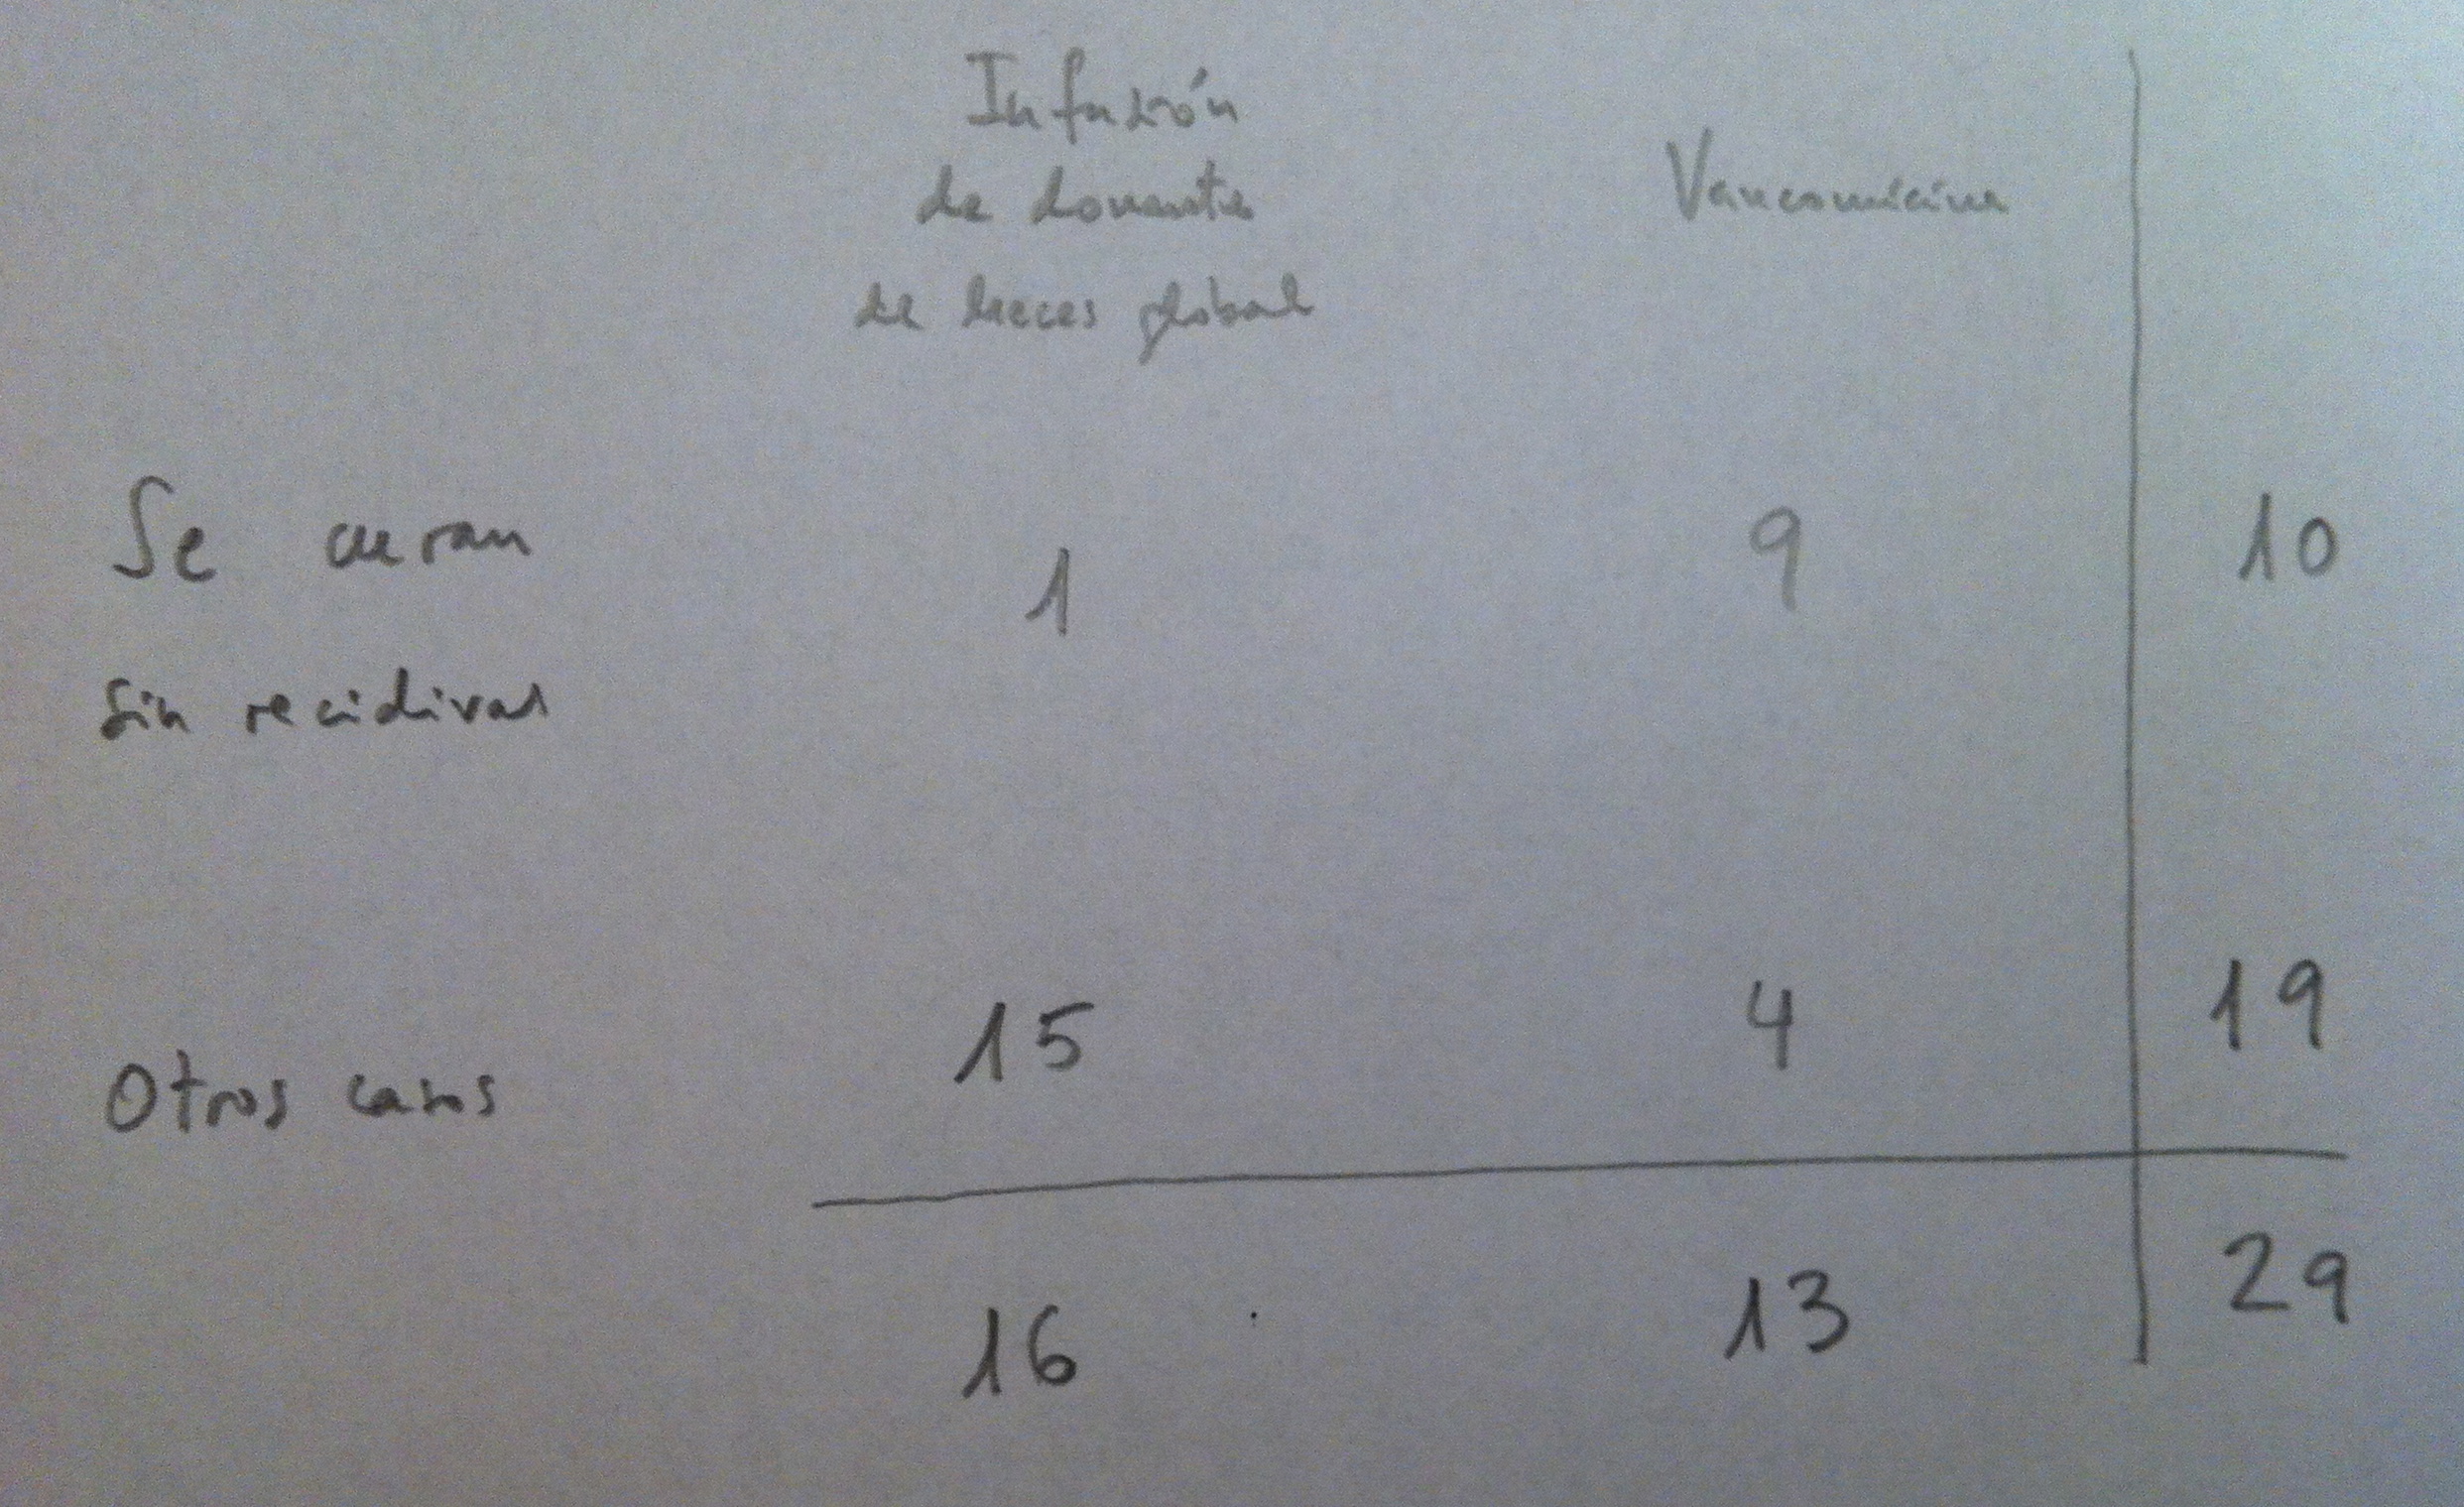 Infusión
de donante
de heces global
Vancomicina
Se curan
sin recidivas
1 9 10
Otros casos
15 4 19
16 13 29